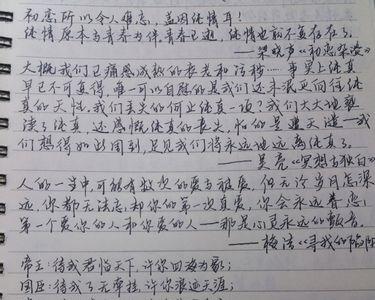 初恋所以令人难忘,盖因纯情耳!
纯情原本与青春为伴。青春已逝,纯情也就不复存在了。
——梁晓声《初恋杂感》
大概我们已痛感成熟的丧失和污秽……事实上纯真
早已不可复得,唯一可以自慰的是我们还未泯灭向往纯
真的天性。我们丢失的何止纯真一项?我们大大地亵
渎了纯真,还感慨纯真的丧失,怕的是遭天谴——我
们想得如此周到,足见我们将永远地远离纯真了。
——吴亮《冥想与独白》
人的一生中,可能有数次的爱与被爱,但无论岁月怎深
远,你都无法忘却你的第一次真爱,你会永远眷恋
第一个爱你的人和你爱的人——那是心灵永远的
——梅洁《寻我的
帝王:待我君临天下,许你四海为家;
国臣:待我了无牵挂,许你浪迹天涯;